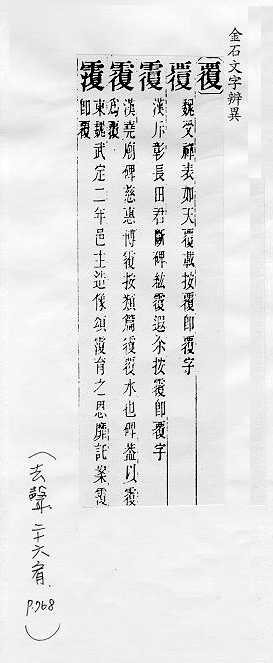 金石文字辨異
〔覆〕
覆 魏受禪表如天覆載按覆即覆字
覆 漢斥彰長田君斷碑紘覆遐尒按覆即覆字
覆 漢堯廟碑慈惠博復按類篇復覆水也碑葢以覆
爲覆
覆 東魏武定二年邑主造像頌覆育之恩靡託案覆
即覆
(去聲二十六宥 P.768)